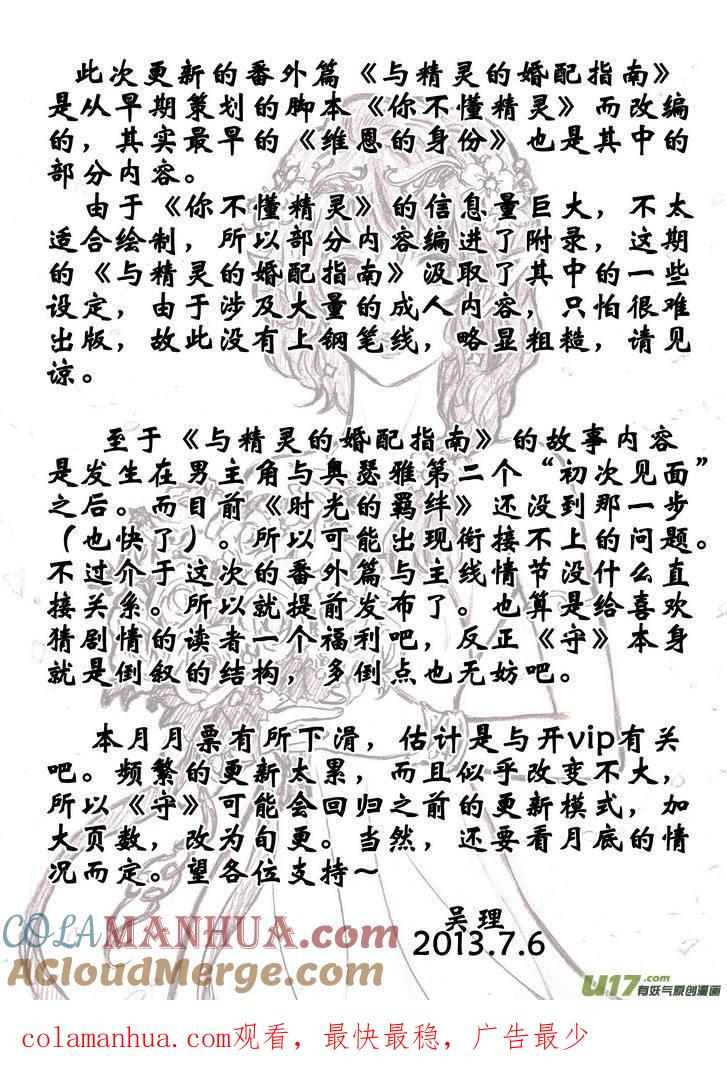 此次更新的番外篇《与精灵的婚配指南》
是从早期策划的脚本《你不懂精灵》而改编
的，其实最早的《维恩的身份》也是其中的
部分内容。
由于《你不懂精灵》的信息量巨大，不太
适合绘制，所以部分内容编进了附录，这期
的《与精灵的婚配指南》汲取了其中的一些
设定，由于涉及大量的成人内容，只怕很难
出版，故此没有上钢笔线，略显粗糙，请见
谅。
至于《与精灵的婚配指南》的故事内容
是发生在男主角与奥瑟雅第二个“初次见面”
之后。而目前《时光的羁绊》还没到那一步
（也快了）。所以可能出现衔接不上的问题。
不过介于这次的番外篇与主线情节没什么直
接关系。所以就提前发布了。也算是给喜欢
猜剧情的读者一个福利吧，反正《守》本身
就是倒叙的结构，多倒点也无妨吧。
本月月票有所下滑，估计是与开vip有关
吧。频繁的更新太累，而且似乎改变不大，
所以《守》可能会回归之前的更新模式，加
大页数，改为旬更。当然，还要看月底的情
况而定。望各位支持～
吴理
2013.7.6
COLAMANHUA.com
ACloudMerge.com
U17.com
有妖气原创漫画
colamanhua.com观看，最快最稳，广告最少